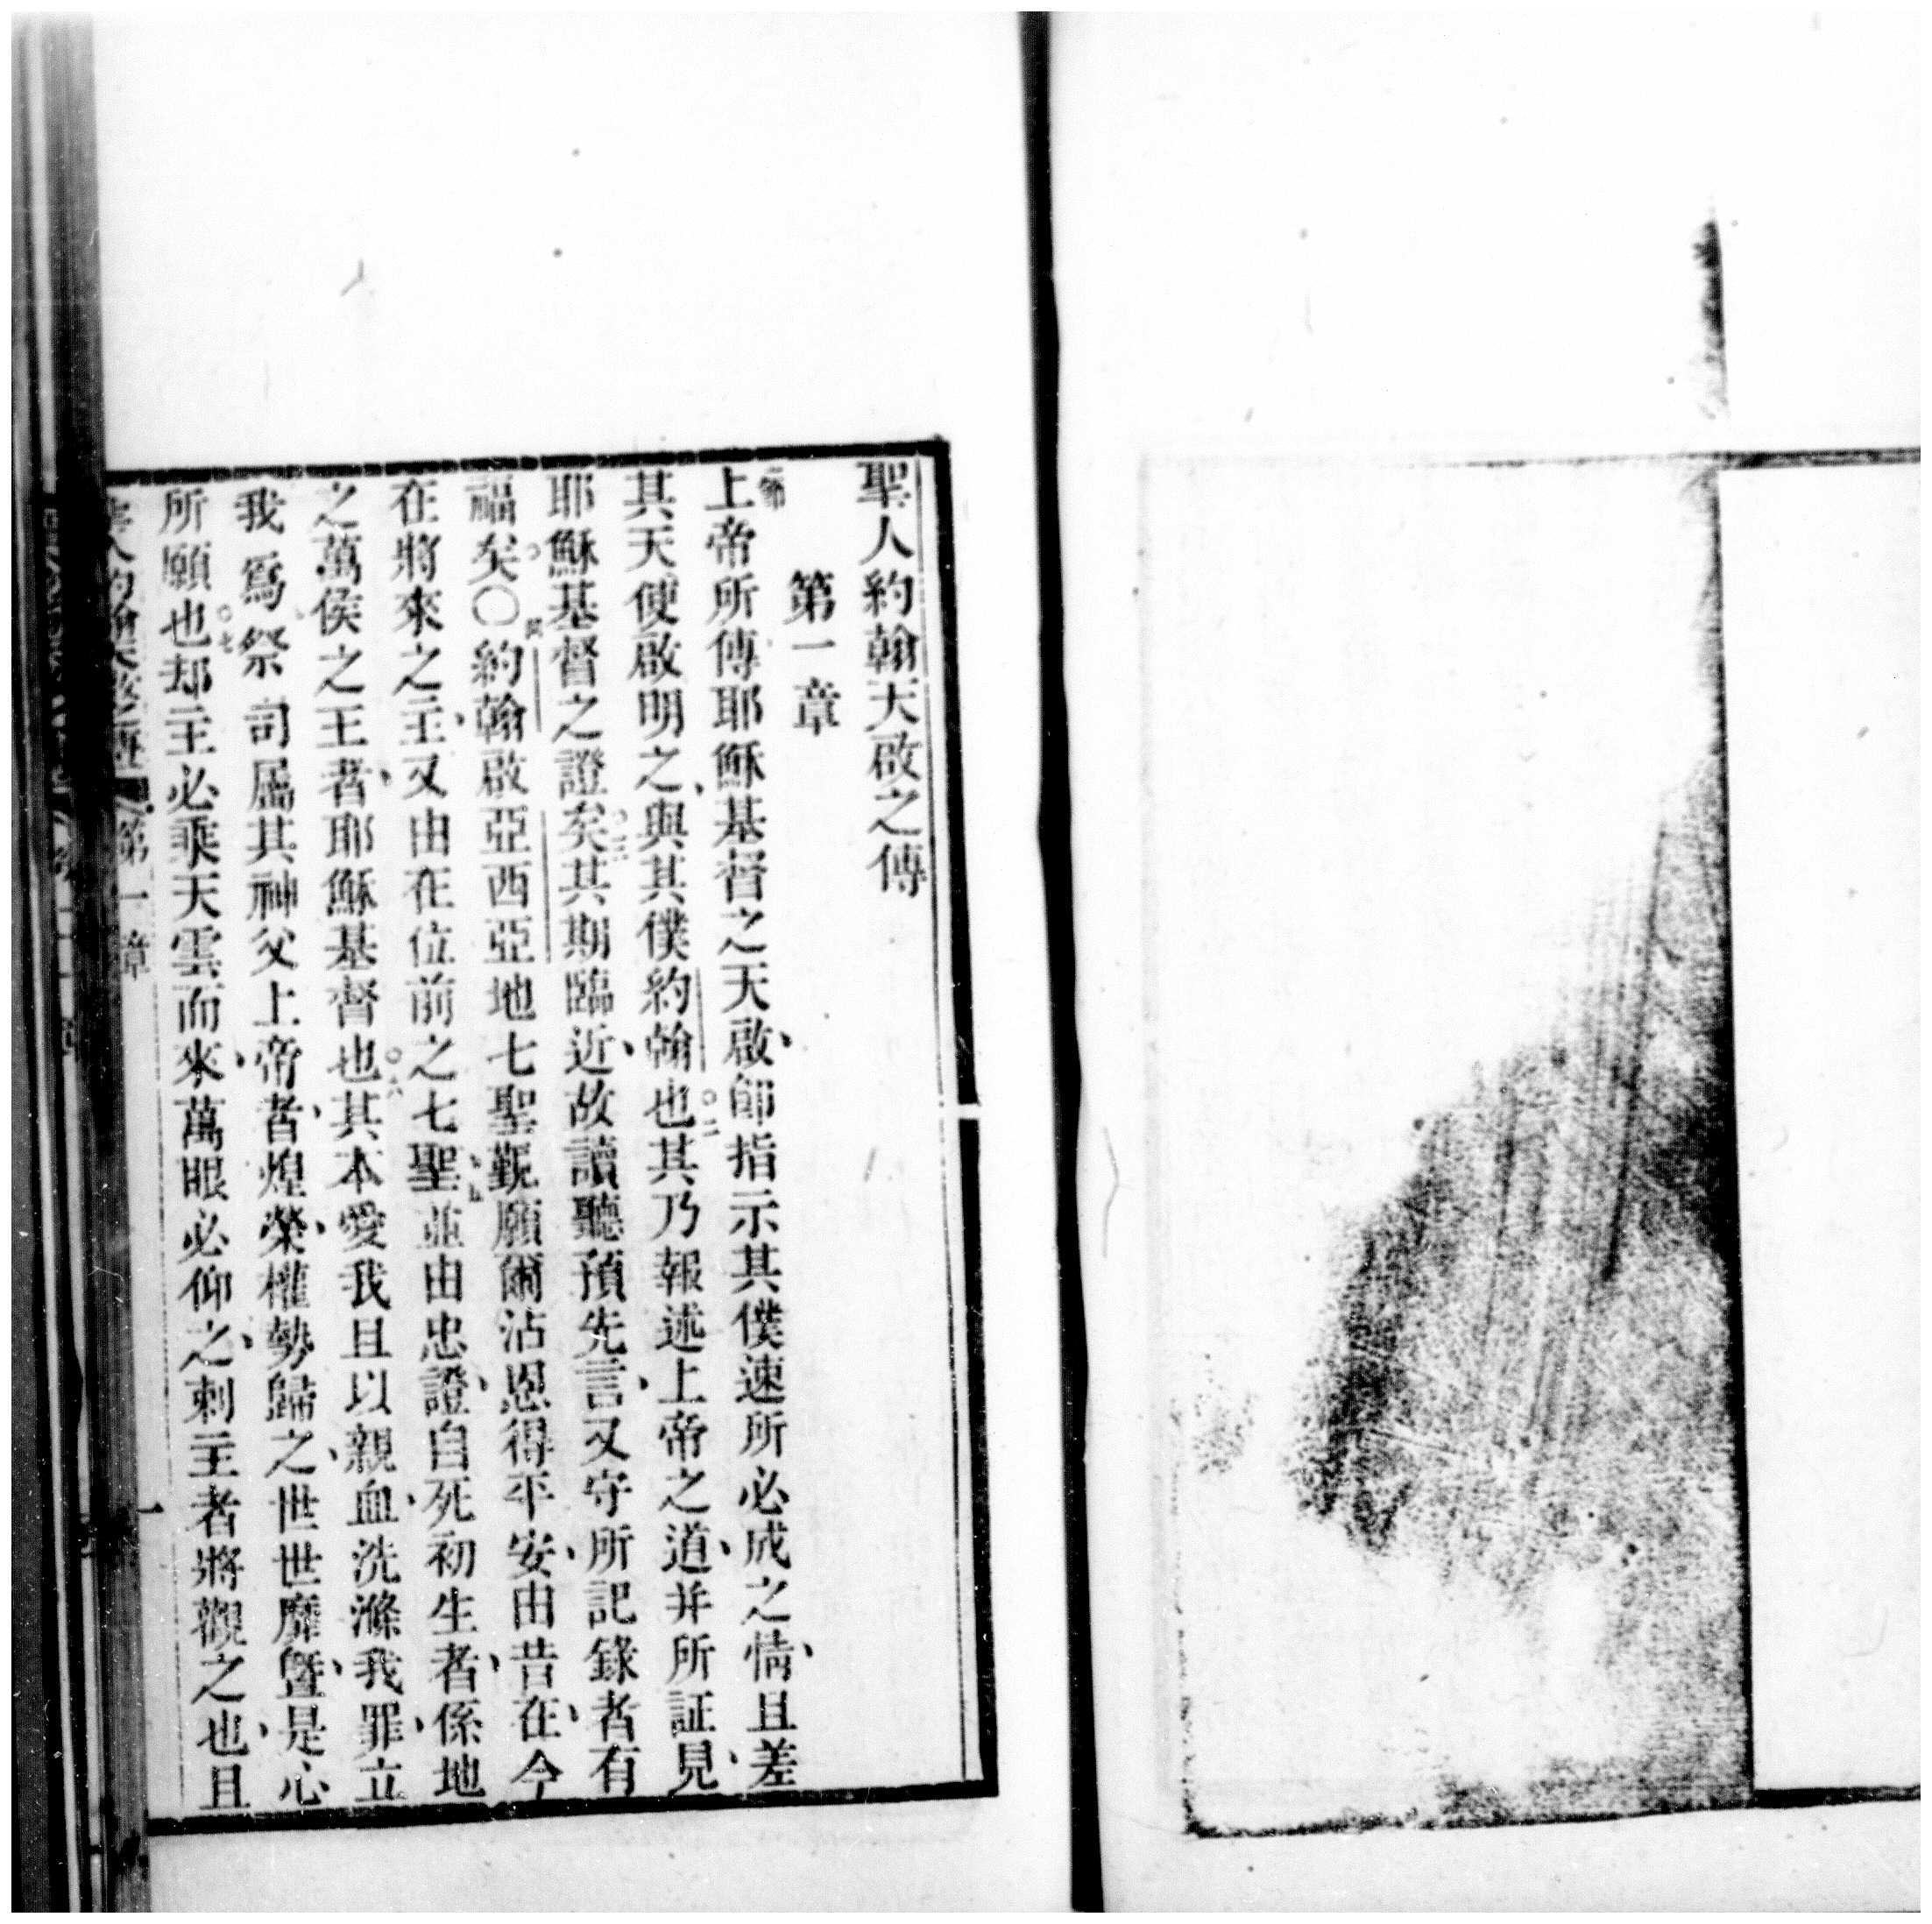 聖人約翰天啟之傳
第一章
上帝所傳耶穌基督之天啟、即指示其僕速所必成之情、且差
其天使啟明之、與其僕約翰也○二其乃報述上帝之道、并所証見、
耶穌基督之證矣○三其期臨近、故讀聽預先言、又守所記錄者有
福矣○〇約翰啟亞西亞地七聖、覲願爾沾恩得平安、由昔在、今
在將來之主、又由在位前之七聖、並由忠證、自死初生者、係地
之萬侯之王者、耶穌基督也○六其本愛我且以親血、洗滌我罪、立
我為祭司屬其神父上帝者、煌榮、權勢歸之、世世靡曁、是心
所願也○七却主必乘天雲而來、萬眼必仰之、刺主者將觀之也、且
聖人約翰天啟之傳 第一章 一